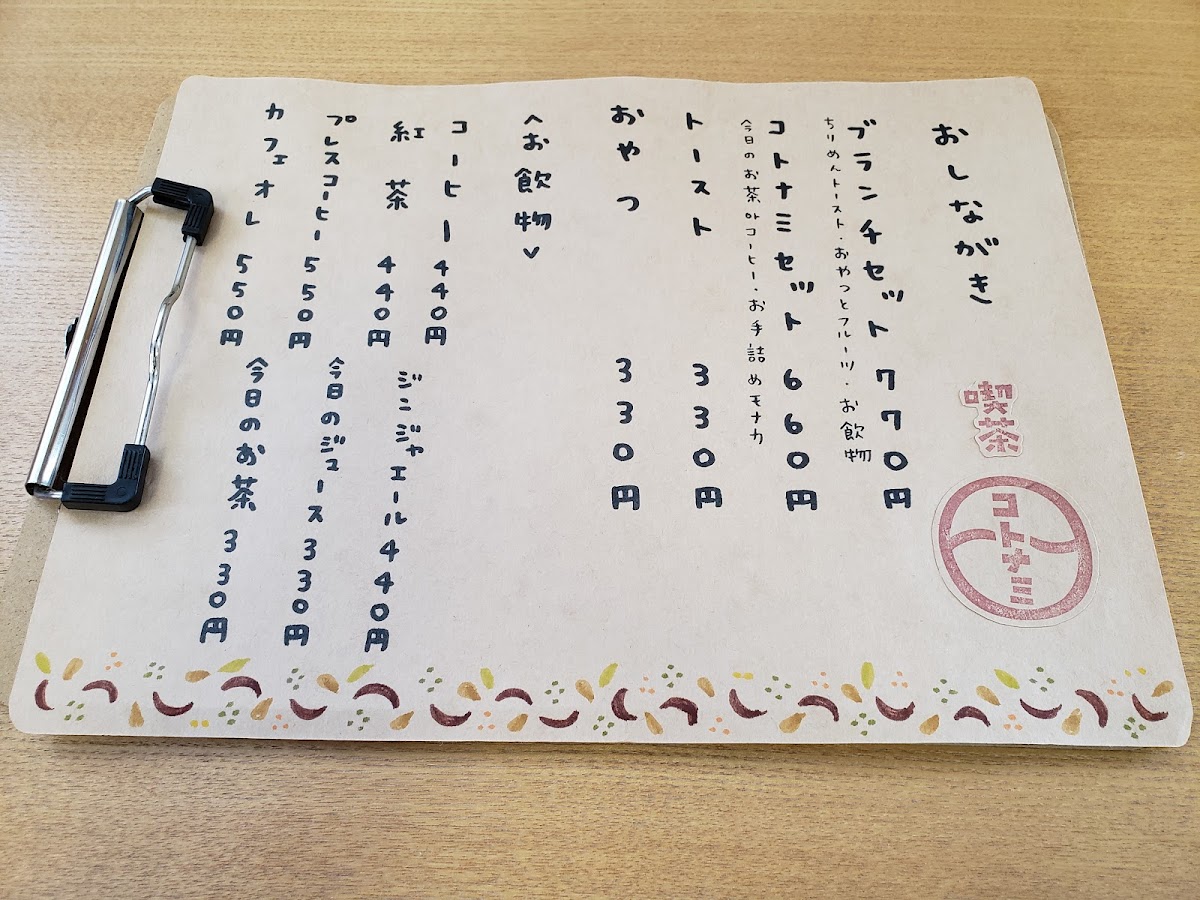 おしながき
喫茶
コトナミ
ブランチセット 770円
ちりめんトースト・おやつとフルーツ・お飲物
コトナミセット 660円
今日のお茶orコーヒー・お手詰めモナカ
トースト 330円
おやつ 330円
<お飲物>
コーヒー 440円
紅茶 440円
プレスコーヒー 550円
カフェオレ 550円
ジンジャエール 440円
今日のジュース 330円
今日のお茶 330円